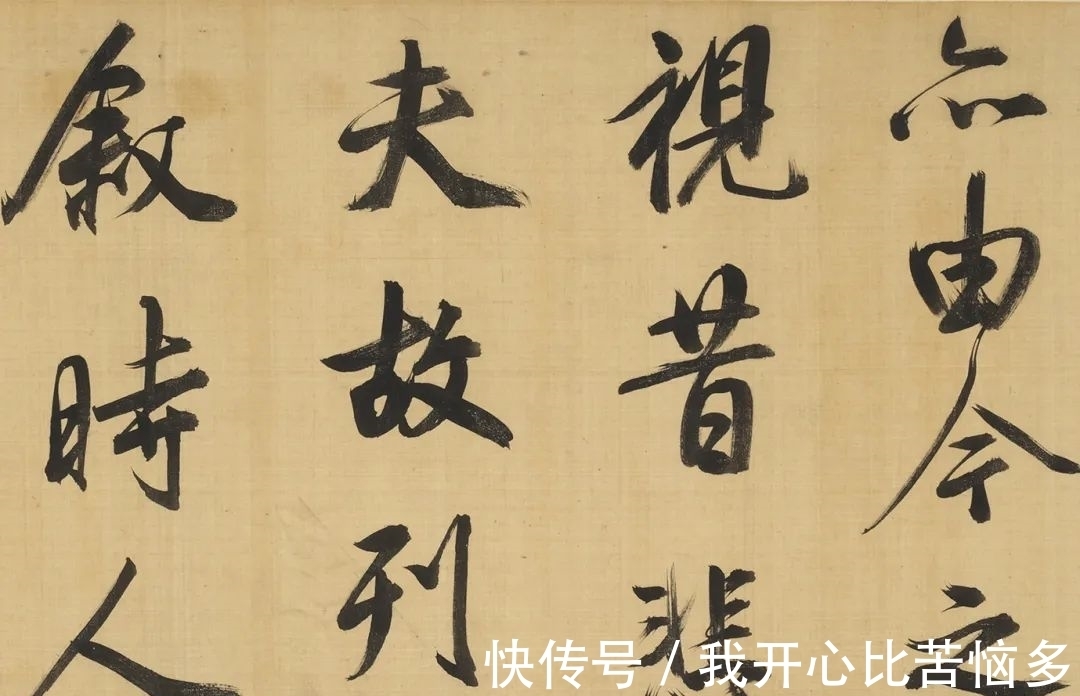 亦由今之
視昔悲
夫故列
叙時人
快传号 / 我开心比苦恼多